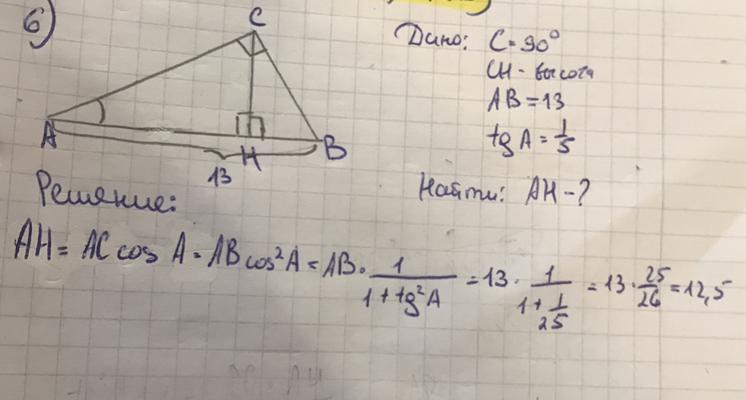 6)
C
A
H
B
13
Дано: C = 90°
CH - высота
AB = 13
tg A = 1/5
Найти: AH - ?
Решение:
AH = AC cos A = AB cos² A = AB · 1/(1 + tg² A) = 13 · 1/(1 + 1/25) = 13 · 25/26 = 12,5